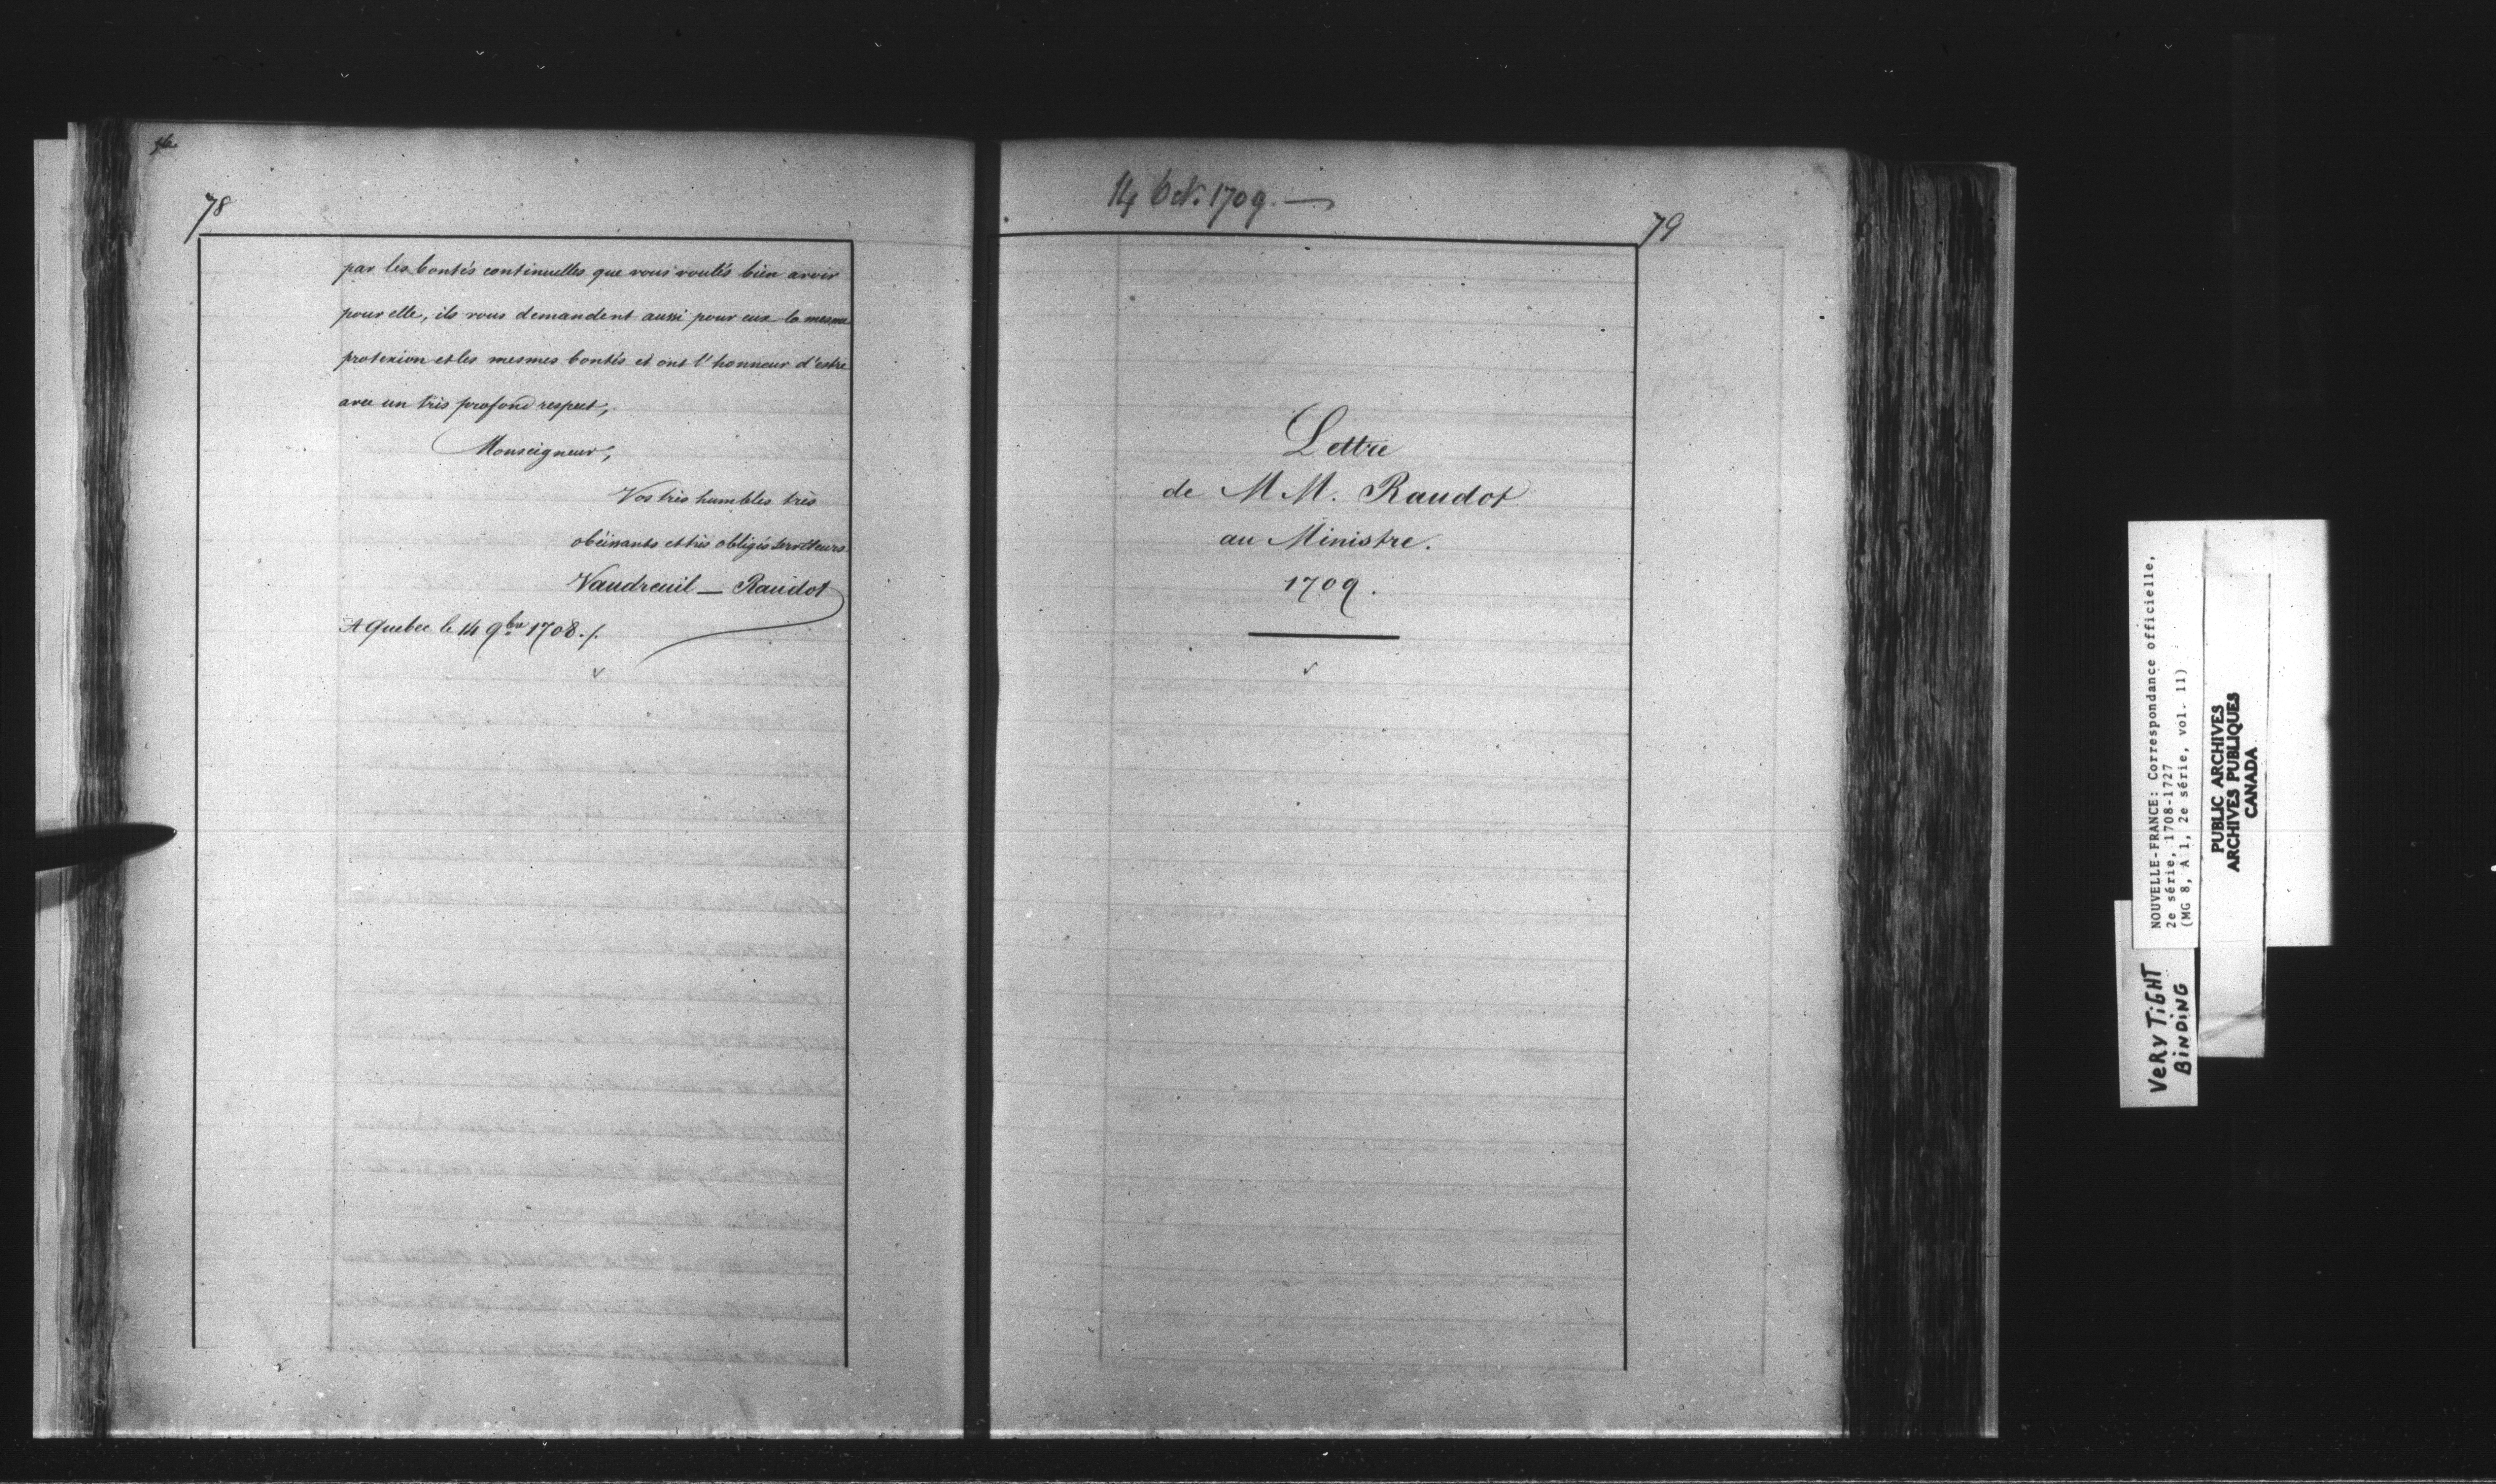 78
par les bontés continuelles que vous voulés bien avoir
pour elle, ils vous demandent aussi pour eux la mesme
protexion et les mesmes bontés et ont l'honneur d'estre
avec un très profond respect,
Monseigneur,
Vos très humbles très
obéissants et très obligés serviteurs
Vaudreuil — Raudot
A Quebec le 14 9bre 1708./.
14 Oct. 1709. —
79
Lettre
de MM. Raudot
au Ministre.
1709.
NOUVELLE-FRANCE: Correspondance officielle,
2e série, 1708-1727
(MG 8, A 1, 2e série, vol. 11)
PUBLIC ARCHIVES
ARCHIVES PUBLIQUES
CANADA
VERY TIGHT
BINDING